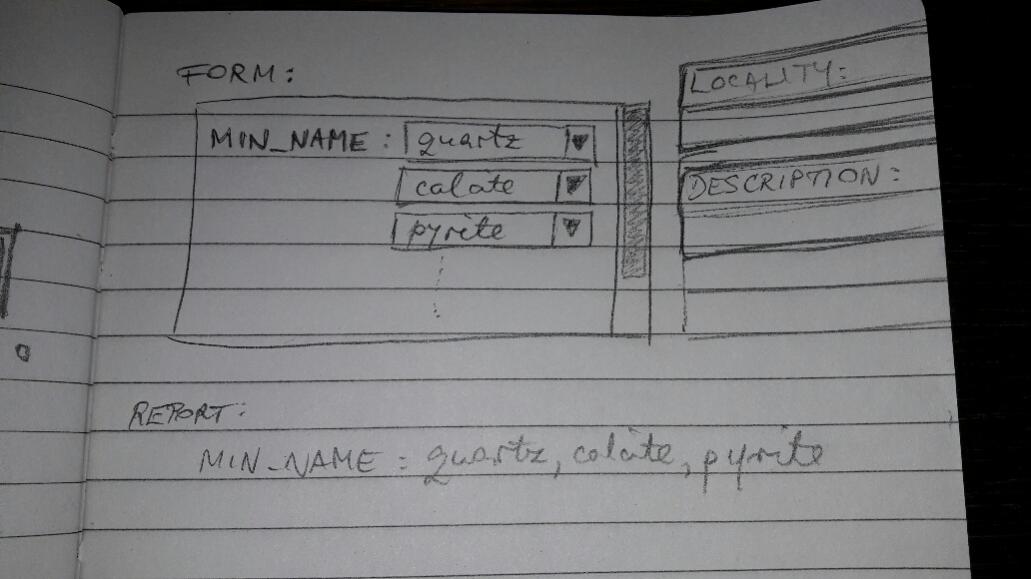 FORM:
MIN_NAME: quartz
calcite
pyrite
LOCALITY:
DESCRIPTION:
REPORT:
MIN_NAME: quartz, calcite, pyrite